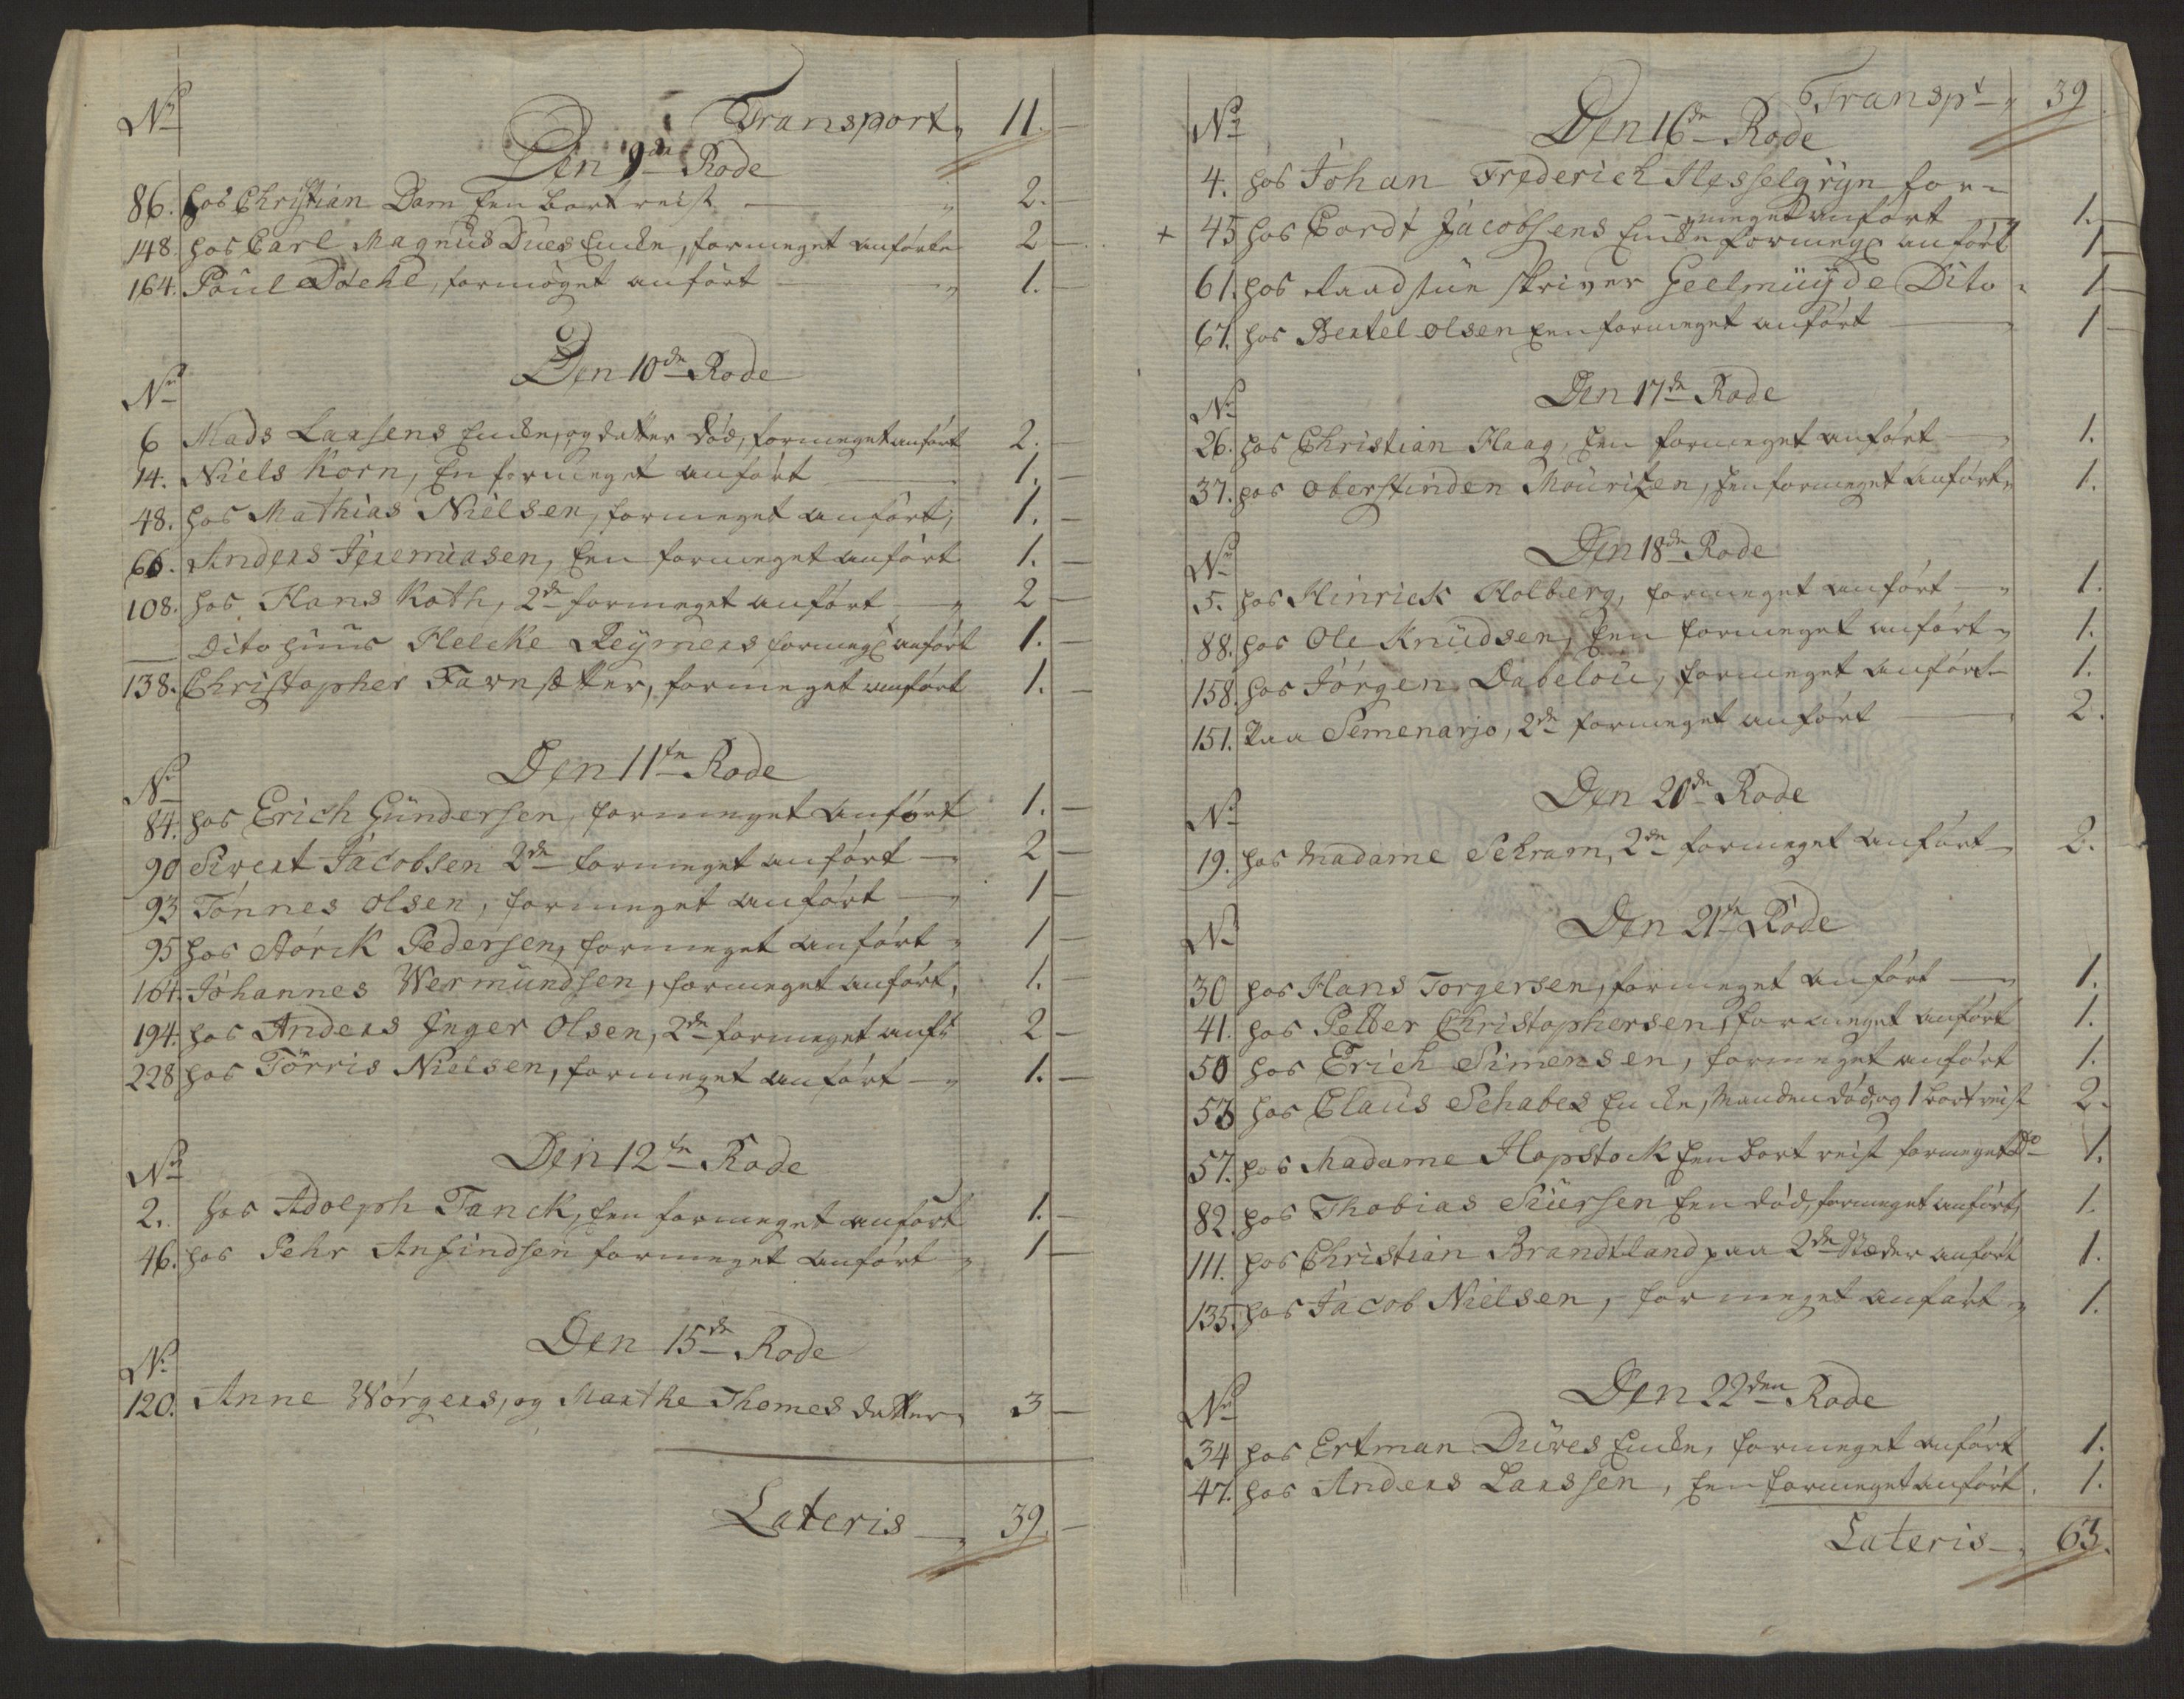 No Transport 11.
Den 9de Rode
86. hos Christian Dam Een bortreist 2.
148. hos Carl Magnus Dues Encke, formeget anførte 2
164. Poul Döehl, formøget anført 1.
Den 10de Rode
No
6 Mads Larsens Encke, og datter död, formeget anført 2.
14. Niels Korn, En formeget anført 1.
48. hos Mathias Nielsen, formeget anført, 1.
66. Anders Jeremiasen, Een formeget anført 1.
108. hos Hans Roth, 2de formeget anført 2
Dito huus Helche Reymers formeg: anført 1.
138. Christopher Farnsøtter, formeget anført 1.
Den 11te Rode
No
84. hos Erich Gundersen, formeget anført 1.
90 Sivert Jacobsen 2de formeget anført 2
93 Tønnes Olsen, formeget anført 1
95 hos Størck Pedersen, formeget anført 1
164. Johannes Wermundsen, formeget anført, 1.
194. hos Anders Jnger Olsen, 2de formeget anft 2
228 hos Törris Nielsen, formeget anført 1.
Den 12te Rode
No
2. hos Adolph Tanck, Een formeget anført 1.
46. hos Pehr Anfindsen formeget anført 1
Den 15de Rode
No
120. Anne Wørgers, og Marthe Thomes datter 3
Lateris 39.
Transpt 39
No Den 16de Rode
4. hos Johan Frederich Hesselgryn for-
meget anført 1.
+ 45 hos Cordt Jacobsens Encke formeg: anført 1
61. hos Raadstue skriver Geelmuyde Dito 1
67. hos Bertel Olsen Een formeget anført 1
Den 17de Rode
No
26. hos Christian Haag, Een formeget anført 1.
37. hos Oberstinden Mouritzen, Een formeget anført 1.
Den 18de Rode
No
5. hos Hinrick Holberg, formeget anført 1.
88. hos Ole Knudsen, Een formeget anført 1.
158. hos Jørgen Dabelou, formeget anført 1.
151. Paa Semenarjo, 2de formeget anført 2.
Den 20de Rode
No
19. hos Madame Schram, 2de formeget anført 2.
Den 21te Rode
No
30 hos Hans Torgersen, formeget anført 1.
41. hos Petter Christophersen, formeget anført 1.
50 hos Erich Simensen, formeget anført 1.
53 hos Claus Schabes Encke, Manden död, og 1 bortreist 2.
57. hos Madame Hopstock Een bort reist formeget Do 1.
82. hos Thobias Siversen Een död, formeget anført, 1.
111. hos Christian Brandtland paa 2de Stæder anført 1.
135. hos Jacob Nielsen, formeget anført 1.
Den 22den Rode
No
34 hos Ertman Duwes Encke, formeget anført 1.
47. hos Anders Larssen, Een formeget anført. 1.
Lateris 63.